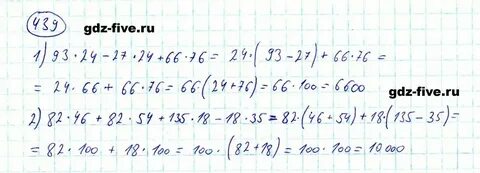 439 gdz-five.ru
1) 93 · 24 - 27 · 24 + 66 · 76 = 24 · (93 - 27) + 66 · 76 =
= 24 · 66 + 66 · 76 = 66 (24 + 76) = 66 · 100 = 6600
gdz-five.ru
2) 82 · 46 + 82 · 54 + 135 · 18 - 18 · 35 = 82 · (46 + 54) + 18 · (135 - 35) =
= 82 · 100 + 18 · 100 = 100 · (82 + 18) = 100 · 100 = 10 000